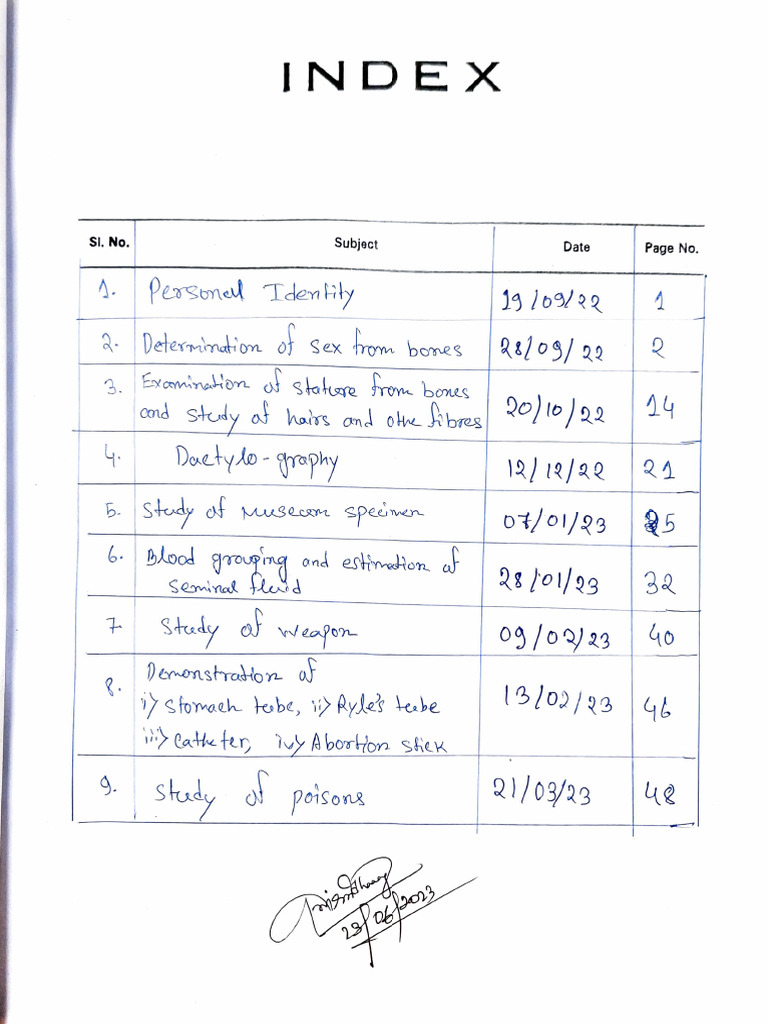 INDEX
Sl. No. Subject Date Page No.
1. Personal Identity 19/09/22 1
2. Determination of sex from bones 28/09/22 2
3. Examination of stature from bones
and study of hairs and othe fibres 20/10/22 14
4. Dactylo-graphy 12/12/22 21
5. Study of Museum specimen 07/01/23 25
6. Blood grouping and estimation of
seminal fluid 28/01/23 32
7. Study of weapon 09/02/23 40
8. Demonstration of
i) Stomach tube, ii) Ryle's tube 13/02/23 46
iii) Catheter, iv) Abortion stick
9. Study of poisons 21/03/23 48
23/06/2023